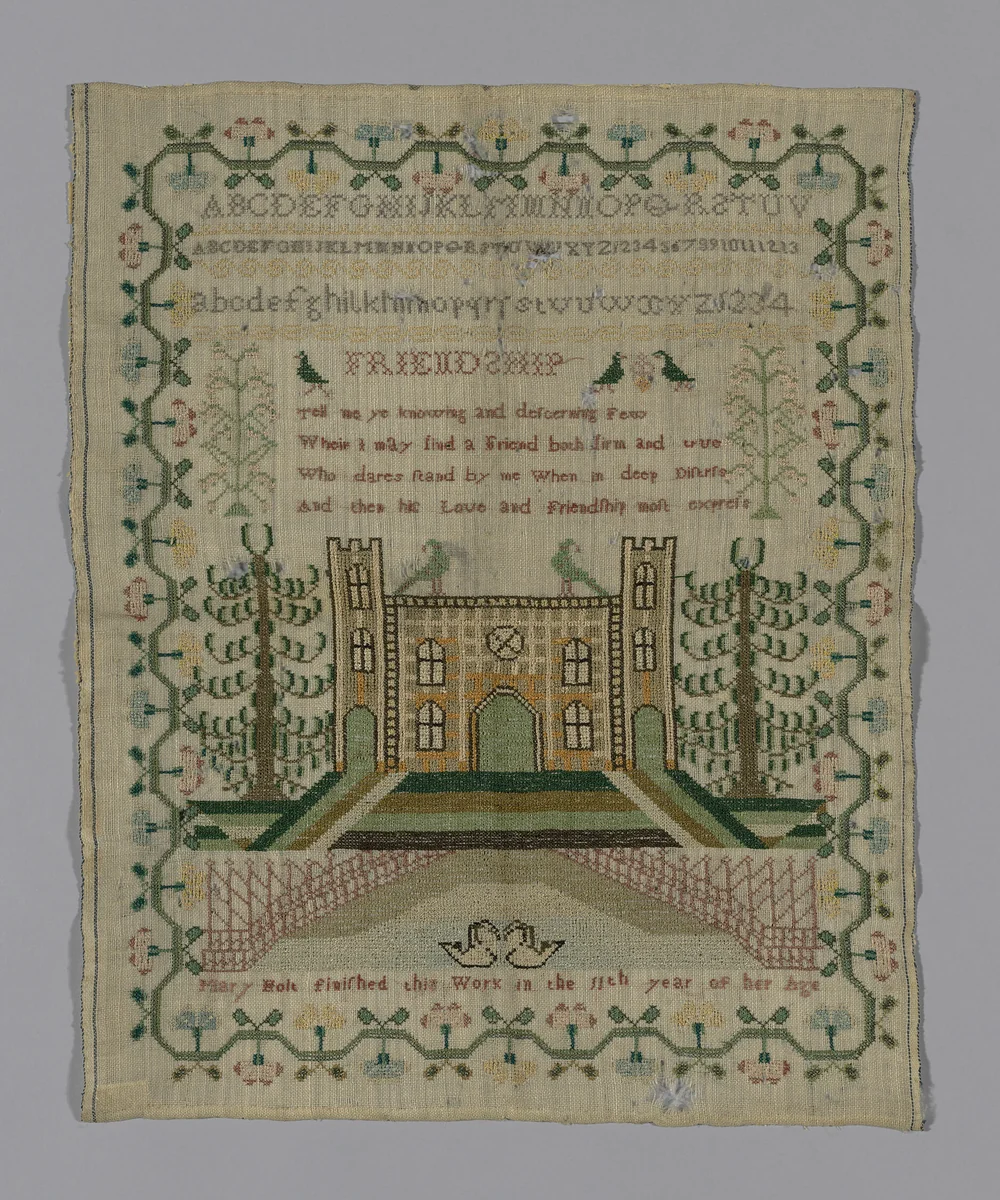 ABCDEFGHIJKLMNOPQRSTUV
ABCDEFGHIJKLMNOPQRSTUVWXYZ1234567891011 1213
abcdefghilkmnopqrſstvuwxyz1234
FRIENDSHIP
Tell me ye knowing and deſcerning Few
Wheir I may find a Friend both firm and true
Who dares ſtand by me When in deep Diſtreſs
And then his Love and Friendſhip moſt expreſs
Mary Holt finiſhed this Work in the 11th year of her Age